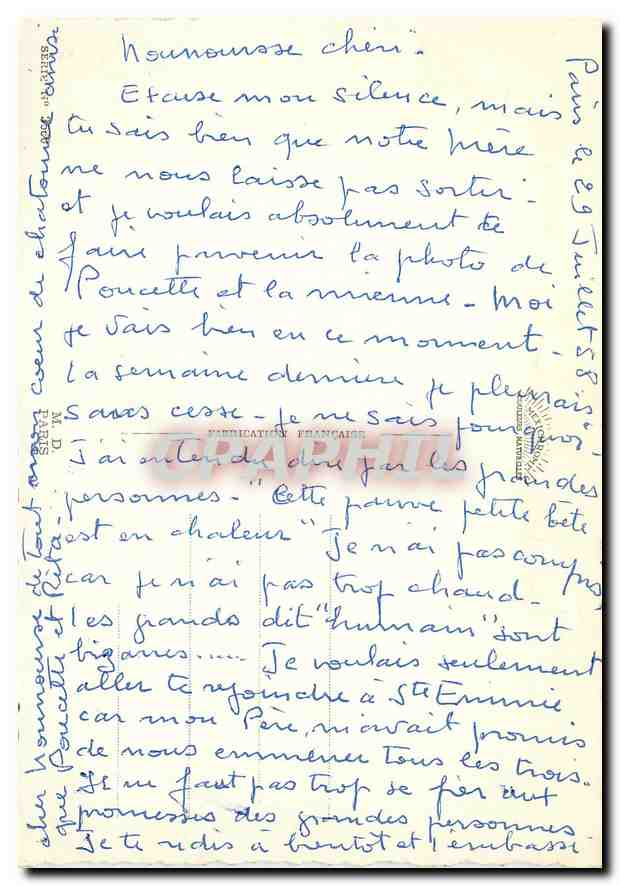 Paris le 29 Juillet 58
Nounourse chéri.
Excuse mon silence, mais
tu sais bien que notre mère
ne nous laisse pas sortir.
et je voulais absolument te
faire parvenir la photo de
Poucette et la mienne. Moi
je vais bien en ce moment.
La semaine dernière je pleurais
sans cesse. Je ne sais pourquoi.
J'ai entendu dire par les grandes
personnes. "Cette pauvre petite bête
est en chaleur" Je n'ai pas compris
car je n'ai pas trop chaud.
Les grands dit "humain" sont
bizarres..... Je voulais seulement
aller te rejoindre à Ste Emmie
car mon Père, m'avait promis
de nous emmener tous les trois.
Il ne faut pas trop se fier aux
promesses des grandes personnes
Je te redis à bientôt et t'embrasse
cher Nounourse de tout mon coeur de chatonne ainsi
que Poucette et Rita.
SERIE No
M. D.
PARIS
FABRICATION FRANÇAISE
MEXICHROME
COULEURS NATURELLES